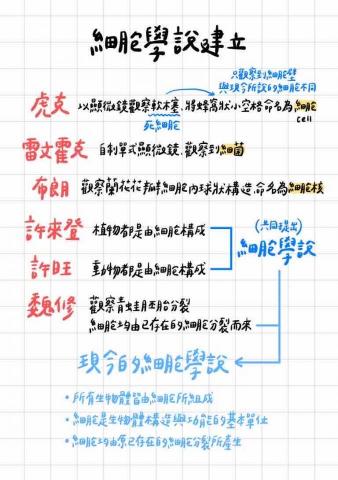 細胞學說建立
只觀察到細胞壁
與現今所說的細胞不同
虎克 以顯微鏡觀察軟木塞,將蜂窩狀小空格命名為細胞
死細胞 cell
雷文霍克 自制單式顯微鏡,觀察到細菌
布朗 觀察蘭花花瓣細胞內球狀構造,命名為細胞核
許來登 植物都是由細胞構成
(共同提出)
細胞學說
許旺 動物都是由細胞構成
魏修 觀察青蛙胚胎分裂
細胞均由已存在的細胞分裂而來
現今的細胞學說
• 所有生物體皆由細胞所組成
• 細胞是生物體構造與功能的基本單位
• 細胞均由原已存在的細胞分裂所產生